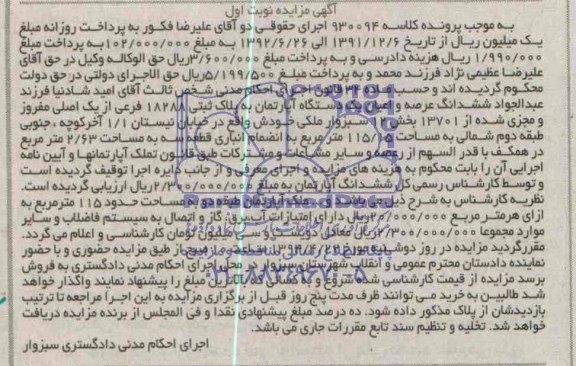 آگهی مزایده نوبت اول
به موجب پرونده کلاسه ۹۳۰۰۹۴ اجرای حقوقی دو آقای علیرضا فکور به پرداخت روزانه مبلغ
یک میلیون ریال از تاریخ ۱۳۹۱/۱۲/۶ الی ۱۳۹۲/۶/۲۶ به مبلغ ۱۰۲/۰۰۰/۰۰۰ به پرداخت مبلغ
۱/۹۹۰/۰۰۰ ریال هزینه دادرسی و به پرداخت مبلغ ۳/۶۰۰/۰۰۰ ریال حق الوکاله وکیل در حق آقای
علیرضا عظیمی نژاد فرزند محمد و به پرداخت مبلغ ۵/۱۹۹/۵۰۰ ریال حق الاجرای دولتی در حق دولت
محکوم گردیده اند و حسب قانون اجرای احکام مدنی شخص ثالث آقای امید شادنیا فرزند
عبدالجواد ششدانگ عرصه و اعیان دستگاه آپارتمان به پلاک ثبتی ۱۸۲۸۸ فرعی از یک اصلی مفروز
و مجزی شده از ۱۳۷۰۱ بخش سبزوار ملکی خودش واقع در خیابان نیستان ۱/۱ آخرکوچه ، جنوبی
طبقه دوم شمالی به مساحت ۱۱۵/۰۵ متر مربع به انضمام انباری قطعه به مساحت ۲/۶۳ متر مربع
در همکف با قدر السهم از عرصه و سایر مشاعات و مشترکات طبق قانون تملک آپارتمانها و آیین نامه
اجرایی آن را بابت محکوم به هزینه های مزایده و اجرای معرفی و از جانب دایره اجرا توقیف گردیده است
و توسط کارشناس رسمی کل ششدانگ آپارتمان به مبلغ ۲/۳۰۰/۰۰۰/۰۰۰ ریال ارزیابی گردیده است.
نظریه کارشناس به شرح ذیل می باشد: ملک آپارتمان طبقه دوم به مساحت حدود ۱۱۵ مترمربع به
ازای هرمتر مربع ۲۰/۰۰۰/۰۰۰ ریال دارای امتیازات آب، برق، گاز و اتصال به سیستم فاضلاب و سایر
موارد مجموعا ۲/۳۰۰/۰۰۰/۰۰۰ ریال معادل دویست و سی میلیون تومان کارشناسی و اعلام می گردد.
مقررگردید مزایده در روز دوشنبه مورخ ۱۳۹۴/۴/۲۲ از ساعت صبح از طریق مزایده حضوری و با حضور
نماینده دادستان محترم عمومی و انقلاب شهرستان سبزوار در محل اجرای احکام مدنی دادگستری به فروش
برسد مزایده از قیمت کارشناسی شده شروع و به کسانی که بالاترین مبلغ را پیشنهاد نمایند واگذار خواهد
شد طالبین به خرید می توانند ظرف مدت پنج روز قبل از برگزاری مزایده به این اجرا مراجعه تا ترتیب
بازدیدشان از پلاک مذکور داده شود. ده درصد مبلغ پیشنهادی نقدا و فی المجلس از برنده مزایده دریافت
خواهد شد. تخلیه و تنظیم سند تابع مقررات جاری می باشد.
اجرای احکام مدنی دادگستری سبزوار